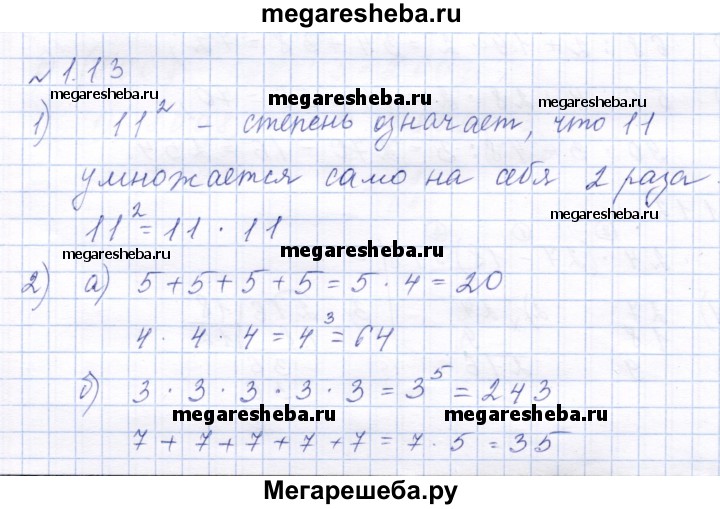 megaresheba.ru
№ 1.13
megaresheba.ru
megaresheba.ru
megaresheba.ru
1) 11² – степень означает, что 11
умножается само на себя 2 раза.
megaresheba.ru
11² = 11 · 11
megaresheba.ru
megaresheba.ru
2) а) 5 + 5 + 5 + 5 = 5 · 4 = 20
4 · 4 · 4 = 4³ = 64
б) 3 · 3 · 3 · 3 · 3 = 3⁵ = 243
megaresheba.ru
megaresheba.ru
7 + 7 + 7 + 7 + 7 = 7 · 5 = 35
Мегарешеба.ру